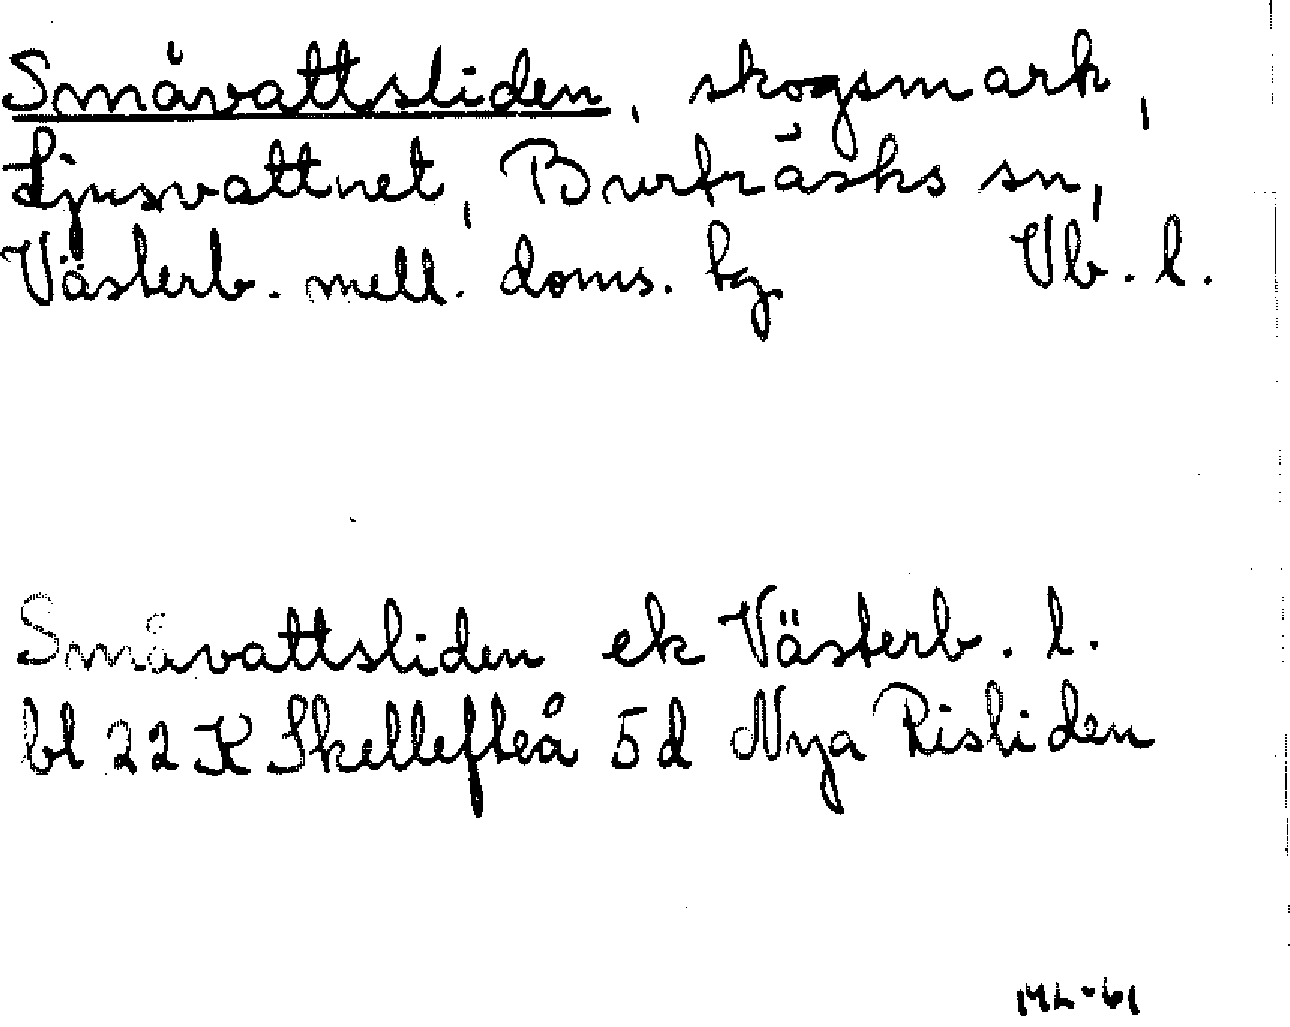 Småvattsliden, skogsmark,
Ljusvattnet, Burträsks sn,
Västerb. mell. doms. tg Vb. l.
Småvattsliden ek Västerb. l.
bl 22 K Skellefteå 5d Nya Risliden
ML-61